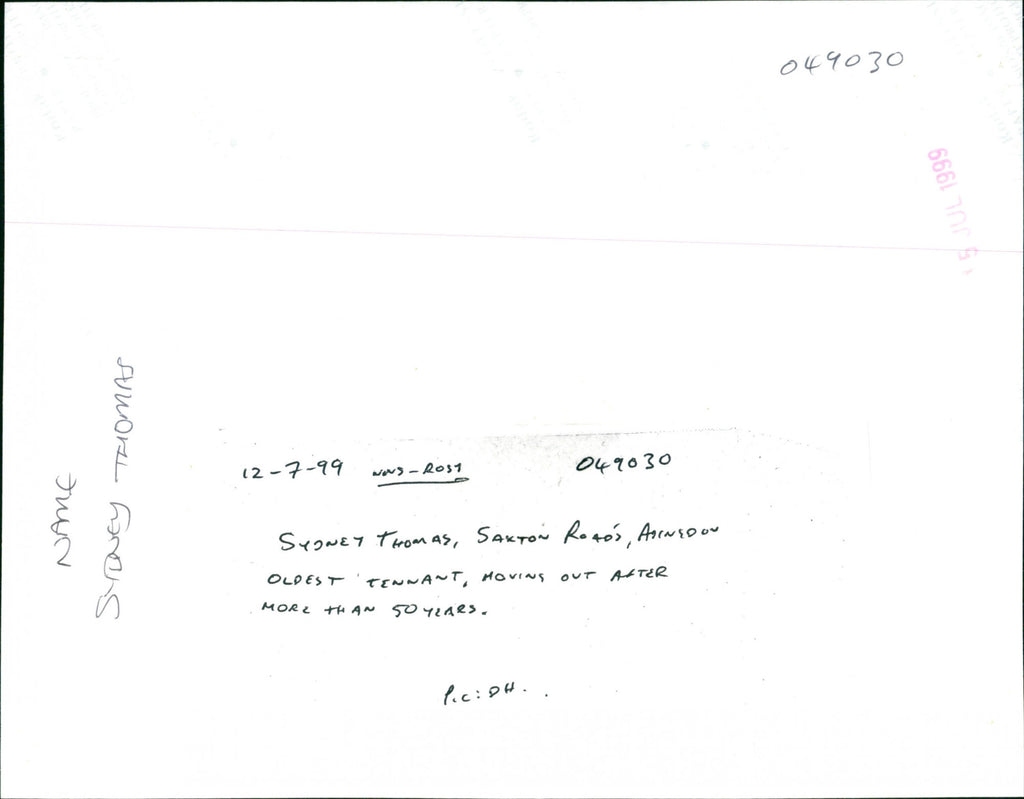 049030
15 JUL 1999
NAME
SYDNEY THOMAS
12-7-99 049030
SYDNEY THOMAS, SAXTON ROAD'S, ABINGDON
OLDEST TENNANT, MOVING OUT AFTER
MORE THAN 50 YEARS.
Pic: DH.